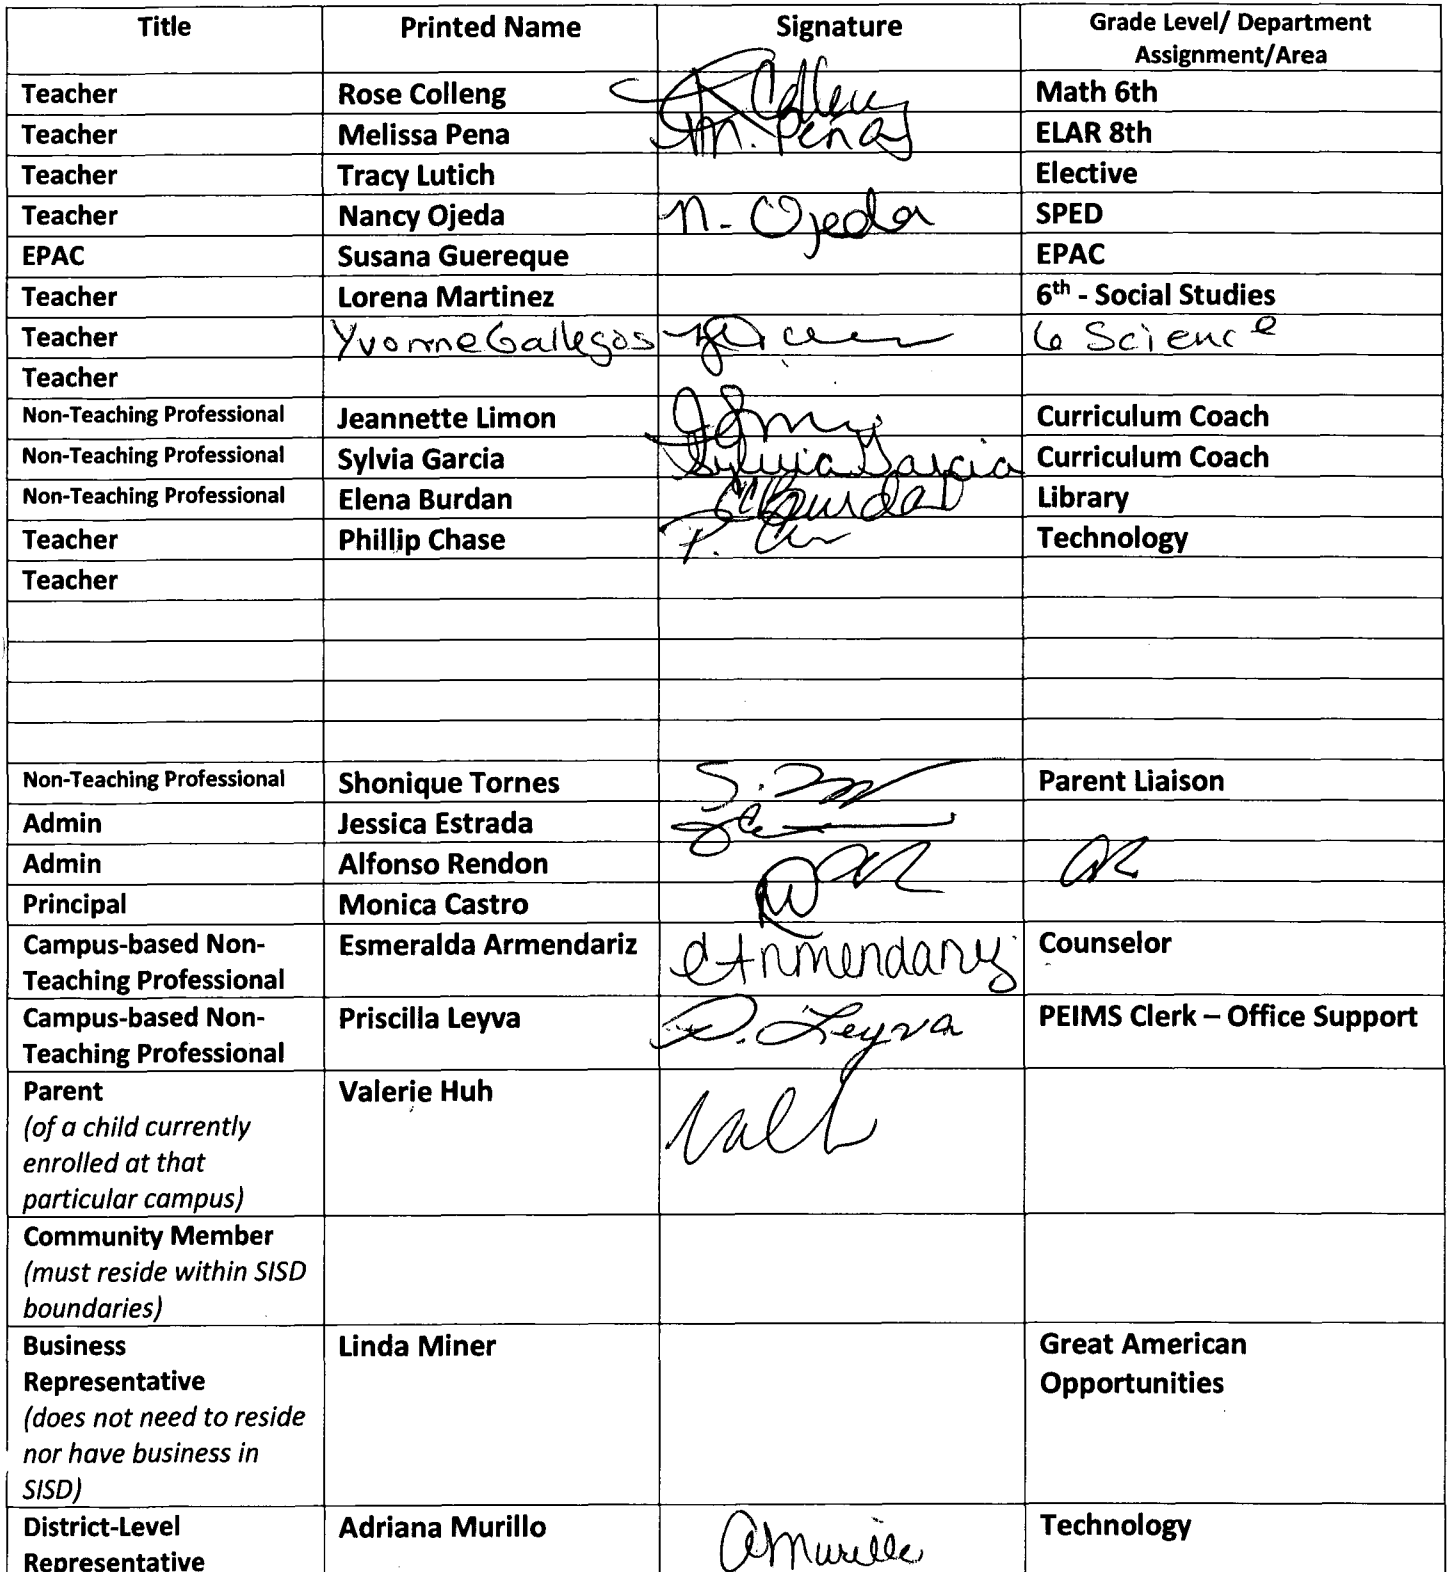 Title Printed Name Signature Grade Level/ Department
Assignment/Area
Teacher Rose Colleng R Colleng Math 6th
Teacher Melissa Pena M. Pena ELAR 8th
Teacher Tracy Lutich Elective
Teacher Nancy Ojeda N. Ojeda SPED
EPAC Susana Guereque EPAC
Teacher Lorena Martinez 6th - Social Studies
Teacher Yvonne Gallegos 6 Science
Teacher
Non-Teaching Professional Jeannette Limon Curriculum Coach
Non-Teaching Professional Sylvia Garcia Sylvia Garcia Curriculum Coach
Non-Teaching Professional Elena Burdan EBurdan Library
Teacher Phillip Chase P. Technology
Teacher
Non-Teaching Professional Shonique Tornes S. Parent Liaison
Admin Jessica Estrada
Admin Alfonso Rendon AR AR
Principal Monica Castro
Campus-based Non- Esmeralda Armendariz EArmendariz Counselor
Teaching Professional
Campus-based Non- Priscilla Leyva P. Leyva PEIMS Clerk – Office Support
Teaching Professional
Parent Valerie Huh Val H
(of a child currently
enrolled at that
particular campus)
Community Member
(must reside within SISD
boundaries)
Business Linda Miner Great American
Representative Opportunities
(does not need to reside
nor have business in
SISD)
District-Level Adriana Murillo AMurillo Technology
Representative